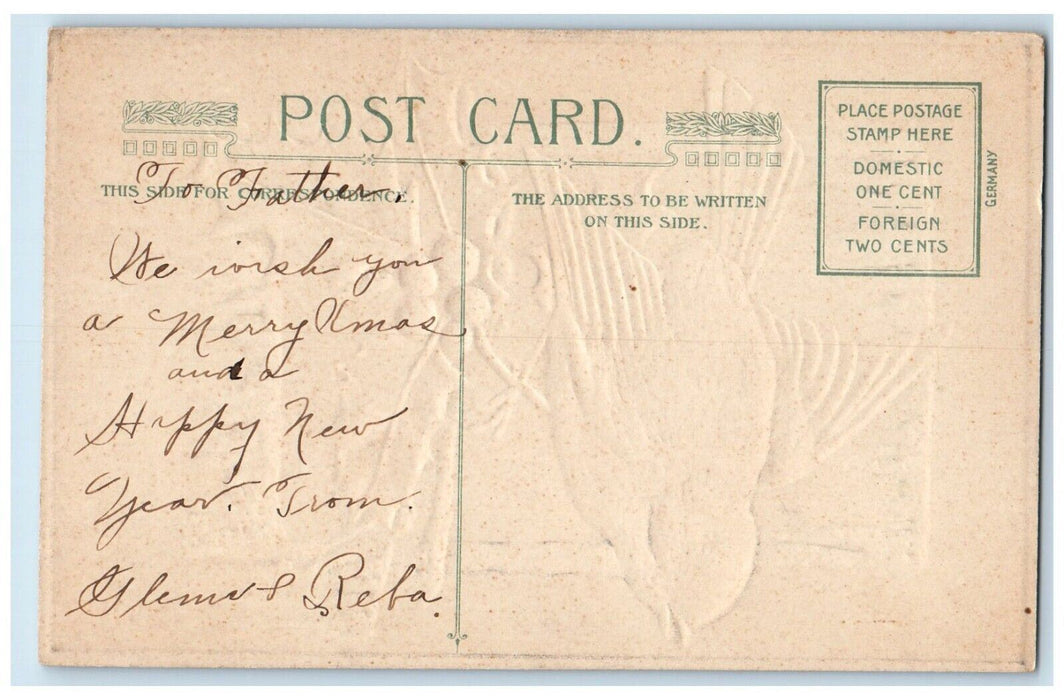 POST CARD.
THIS SIDE FOR CORRESPONDENCE.
To Father.
We wish you
a Merry Xmas
and a
Happy New
Year. From.
& Reba.
THE ADDRESS TO BE WRITTEN
ON THIS SIDE.
PLACE POSTAGE
STAMP HERE
DOMESTIC
ONE CENT
FOREIGN
TWO CENTS
GERMANY